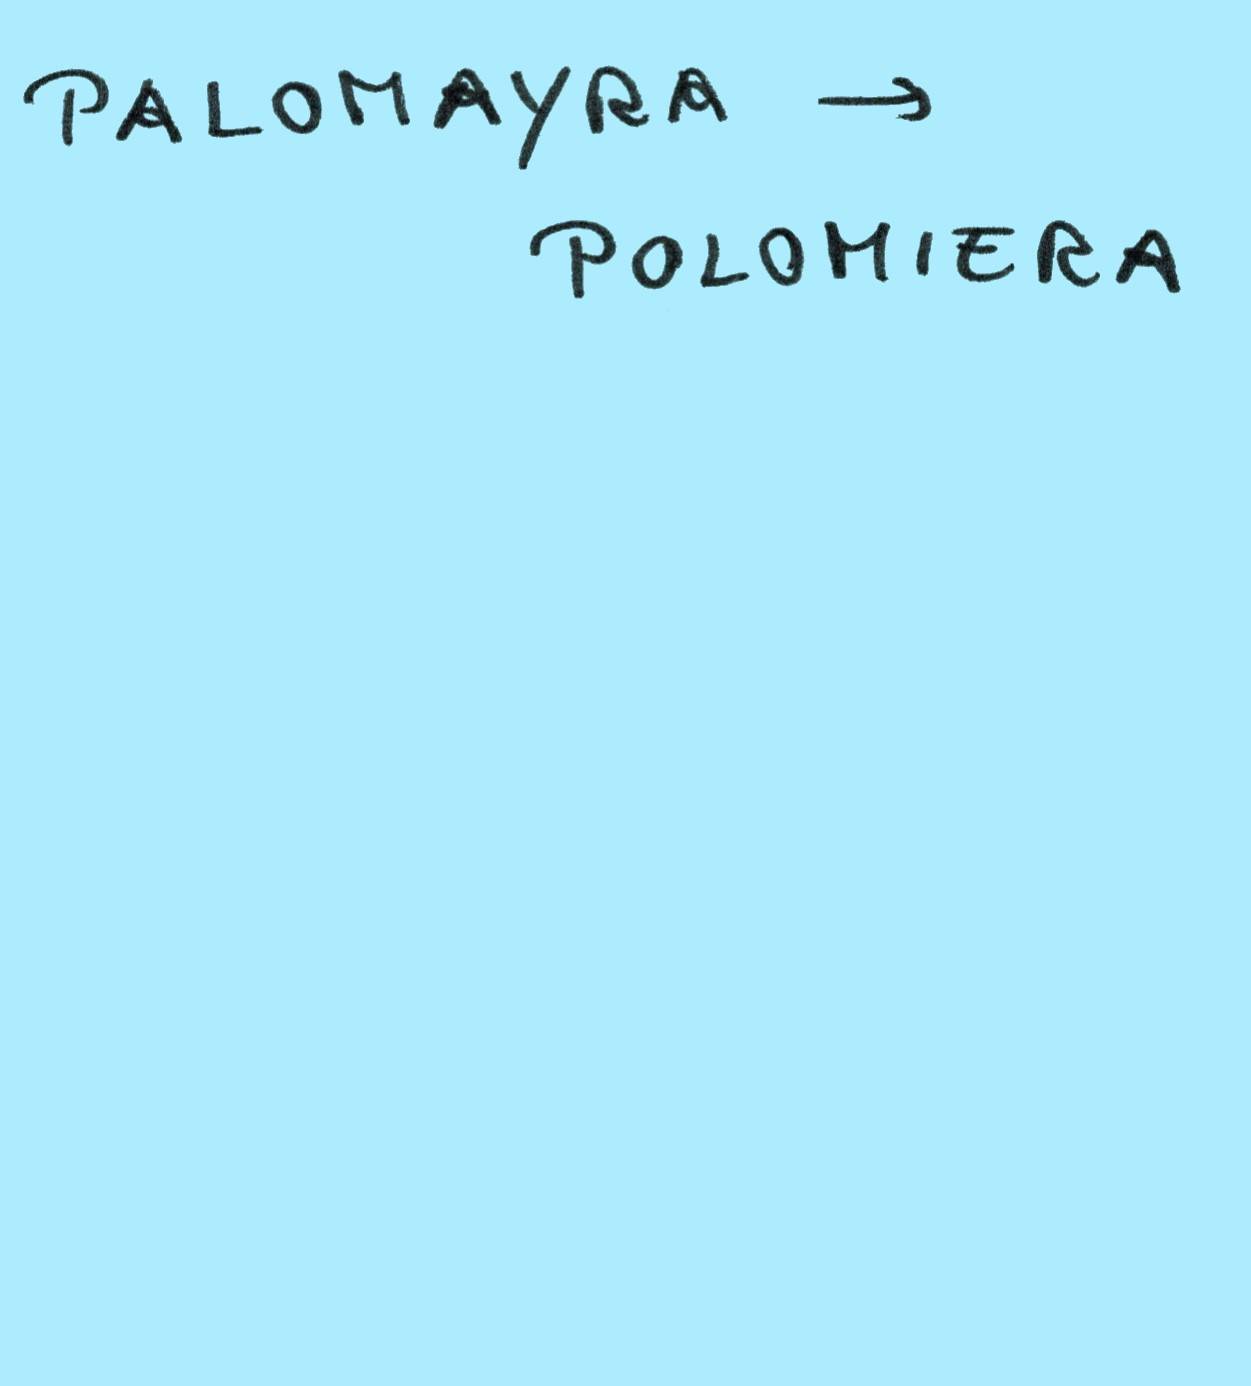 PALOMAYRA →
POLOMIERA